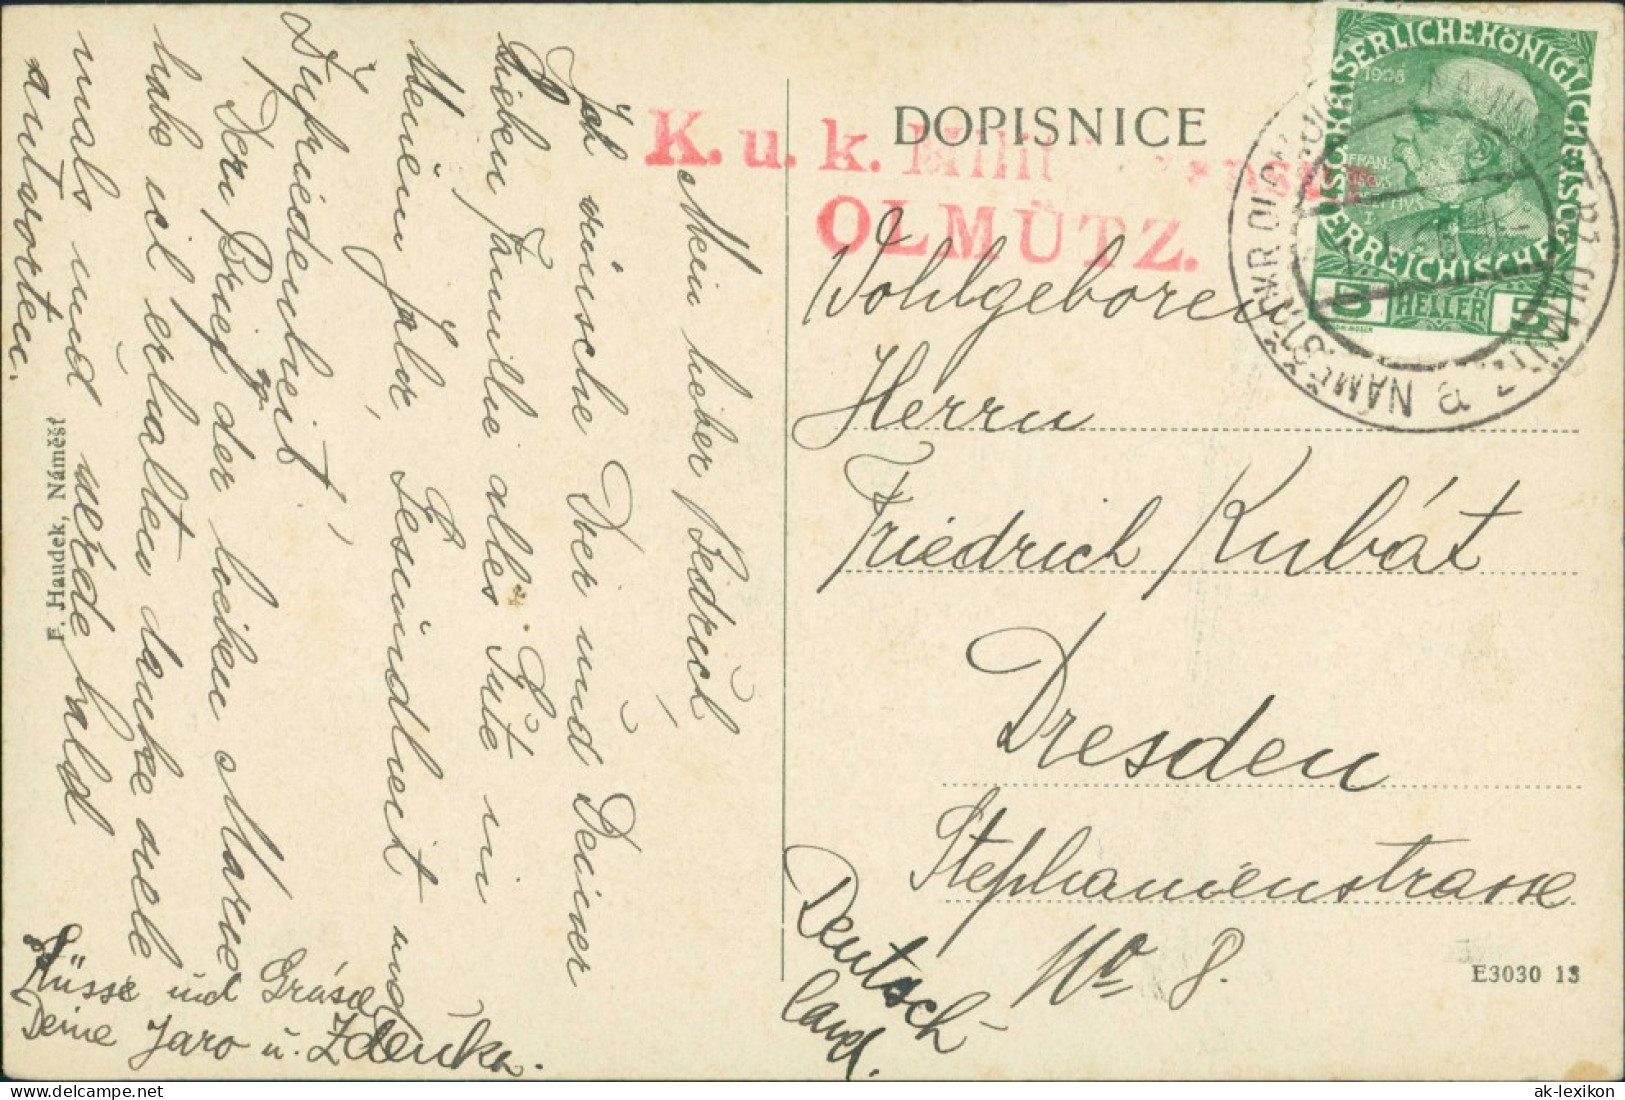 Mein lieber Bedřich
Ich wünsche Dier und Deiner
lieben Familie alles Gute in
Neuem Jahr, Gesundheit und
Zufriedenheit,
Den Brief von der lieben Marie
habe ich erhalten danke viele
mals und werde bald
antworten.
Küsse und Grüsse
Deine Jaro u. Zdenka.
F. Haudek, Náměšť
DOPISNICE
K. u. k.
OLMÜTZ.
KAISERLICHE KÖNIGLICHE
ÖSTERREICHISCHE POST
1908
5 HELLER 5
NÁMĚ
Wohlgeboren
Herrn
Friedrich Kubát
Dresden
Stephanienstrasse
No 8.
Deutsch
land.
E3030 13
www.delcampe.net
ak-lexikon